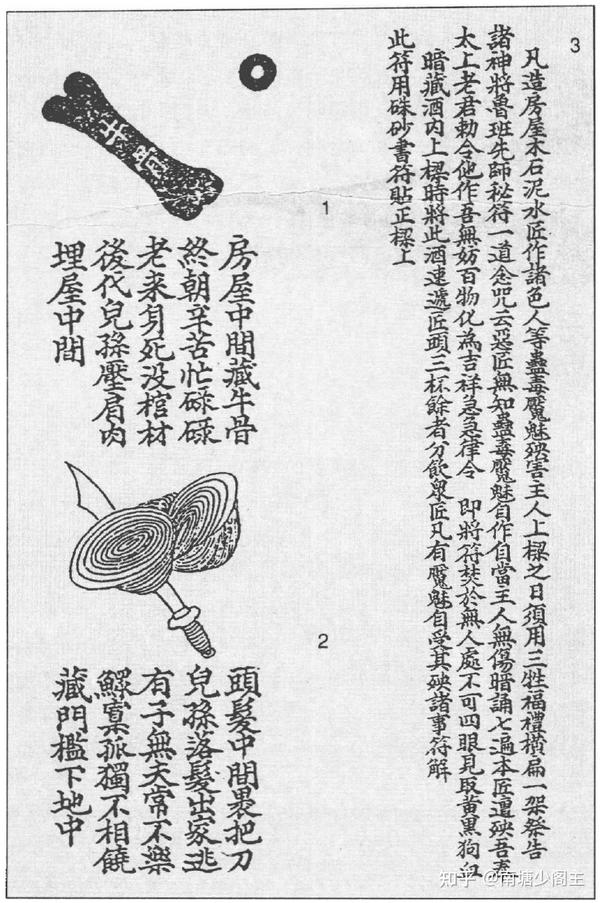 3
凡造房屋木石泥水匠作諸色人等蠱毒魘魅殃害主人上樑之日須用三牲福禮橫扁一架祭告
諸神將魯班先師秘符一道念咒云惡匠無知蠱毒魘魅自作自當主人無傷暗誦七遍本匠遭殃吾奉
太上老君勅令他作吾無妨百物化為吉祥急急律令 即將符焚於無人處不可四眼見取黃黑狗血
暗藏酒內上樑時將此酒連遞匠頭三杯餘者分飲眾匠凡有魘魅自受其殃諸事符解
此符用硃砂書符貼正樑上
1
牛骨
房屋中間藏牛骨
終朝辛苦忙碌碌
老來身死沒棺材
後代兒孫壓肩肉
埋屋中間
2
頭髮中間裹把刀
兒孫落髮出家逃
有子無夫常不樂
鰥寡孤獨不相饒
藏門檻下地中
知乎 @南塘少阁主